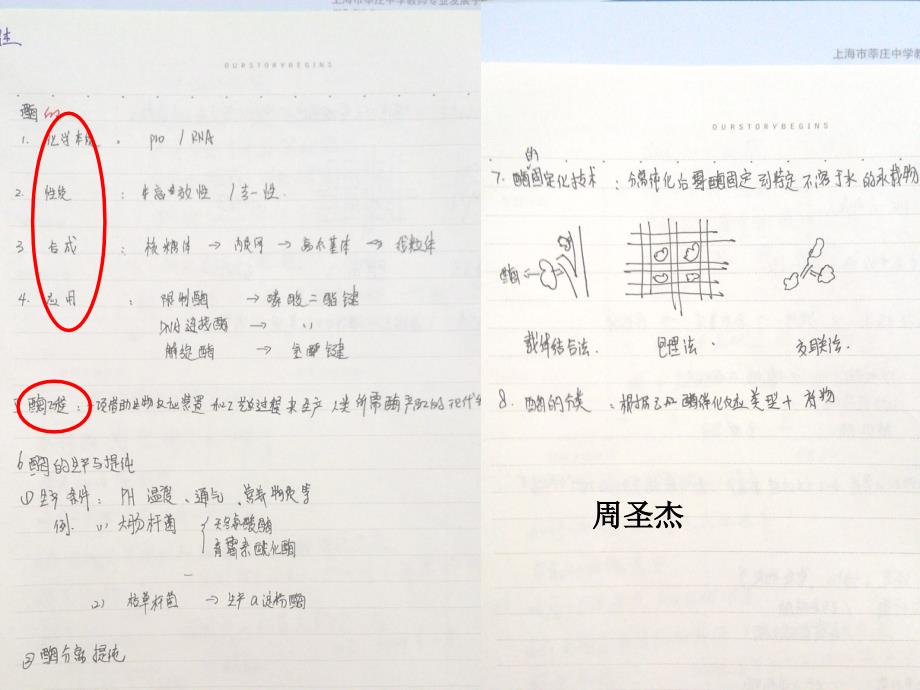 上海市莘庄中学教师专业发展手
OURSTORYBEGINS
酶的
1. 化学本质 。 pro / RNA
2. 性质 : 高效性 / 专一性.
3 合成 : 核糖体 → 内质网 → 高尔基体 →
4. 应用 : 限制酶 → 磷酸二酯键
DNA连接酶 → 〃
解旋酶 → 氢键
酶工程 : 一项借助生物反应装置和工艺过程来生产人类所需酶产品的现代
6 酶的生产与提纯
① 生产条件 : PH 温度、通气、营养物质等
例. 1) 大肠杆菌 { 天冬氨酸酶
青霉素酰化酶
2) 枯草杆菌 → 生产α淀粉酶
② 酶分离提纯
上海市莘庄中学教
OURSTORYBEGINS
7. 酶的固定化技术 : 分离纯化后要酶固定到特定不溶于水的承载物
酶
载体结合法. 包埋法. 交联法.
8. 酶的分类 : 根据酶催化反应类型+
周圣杰